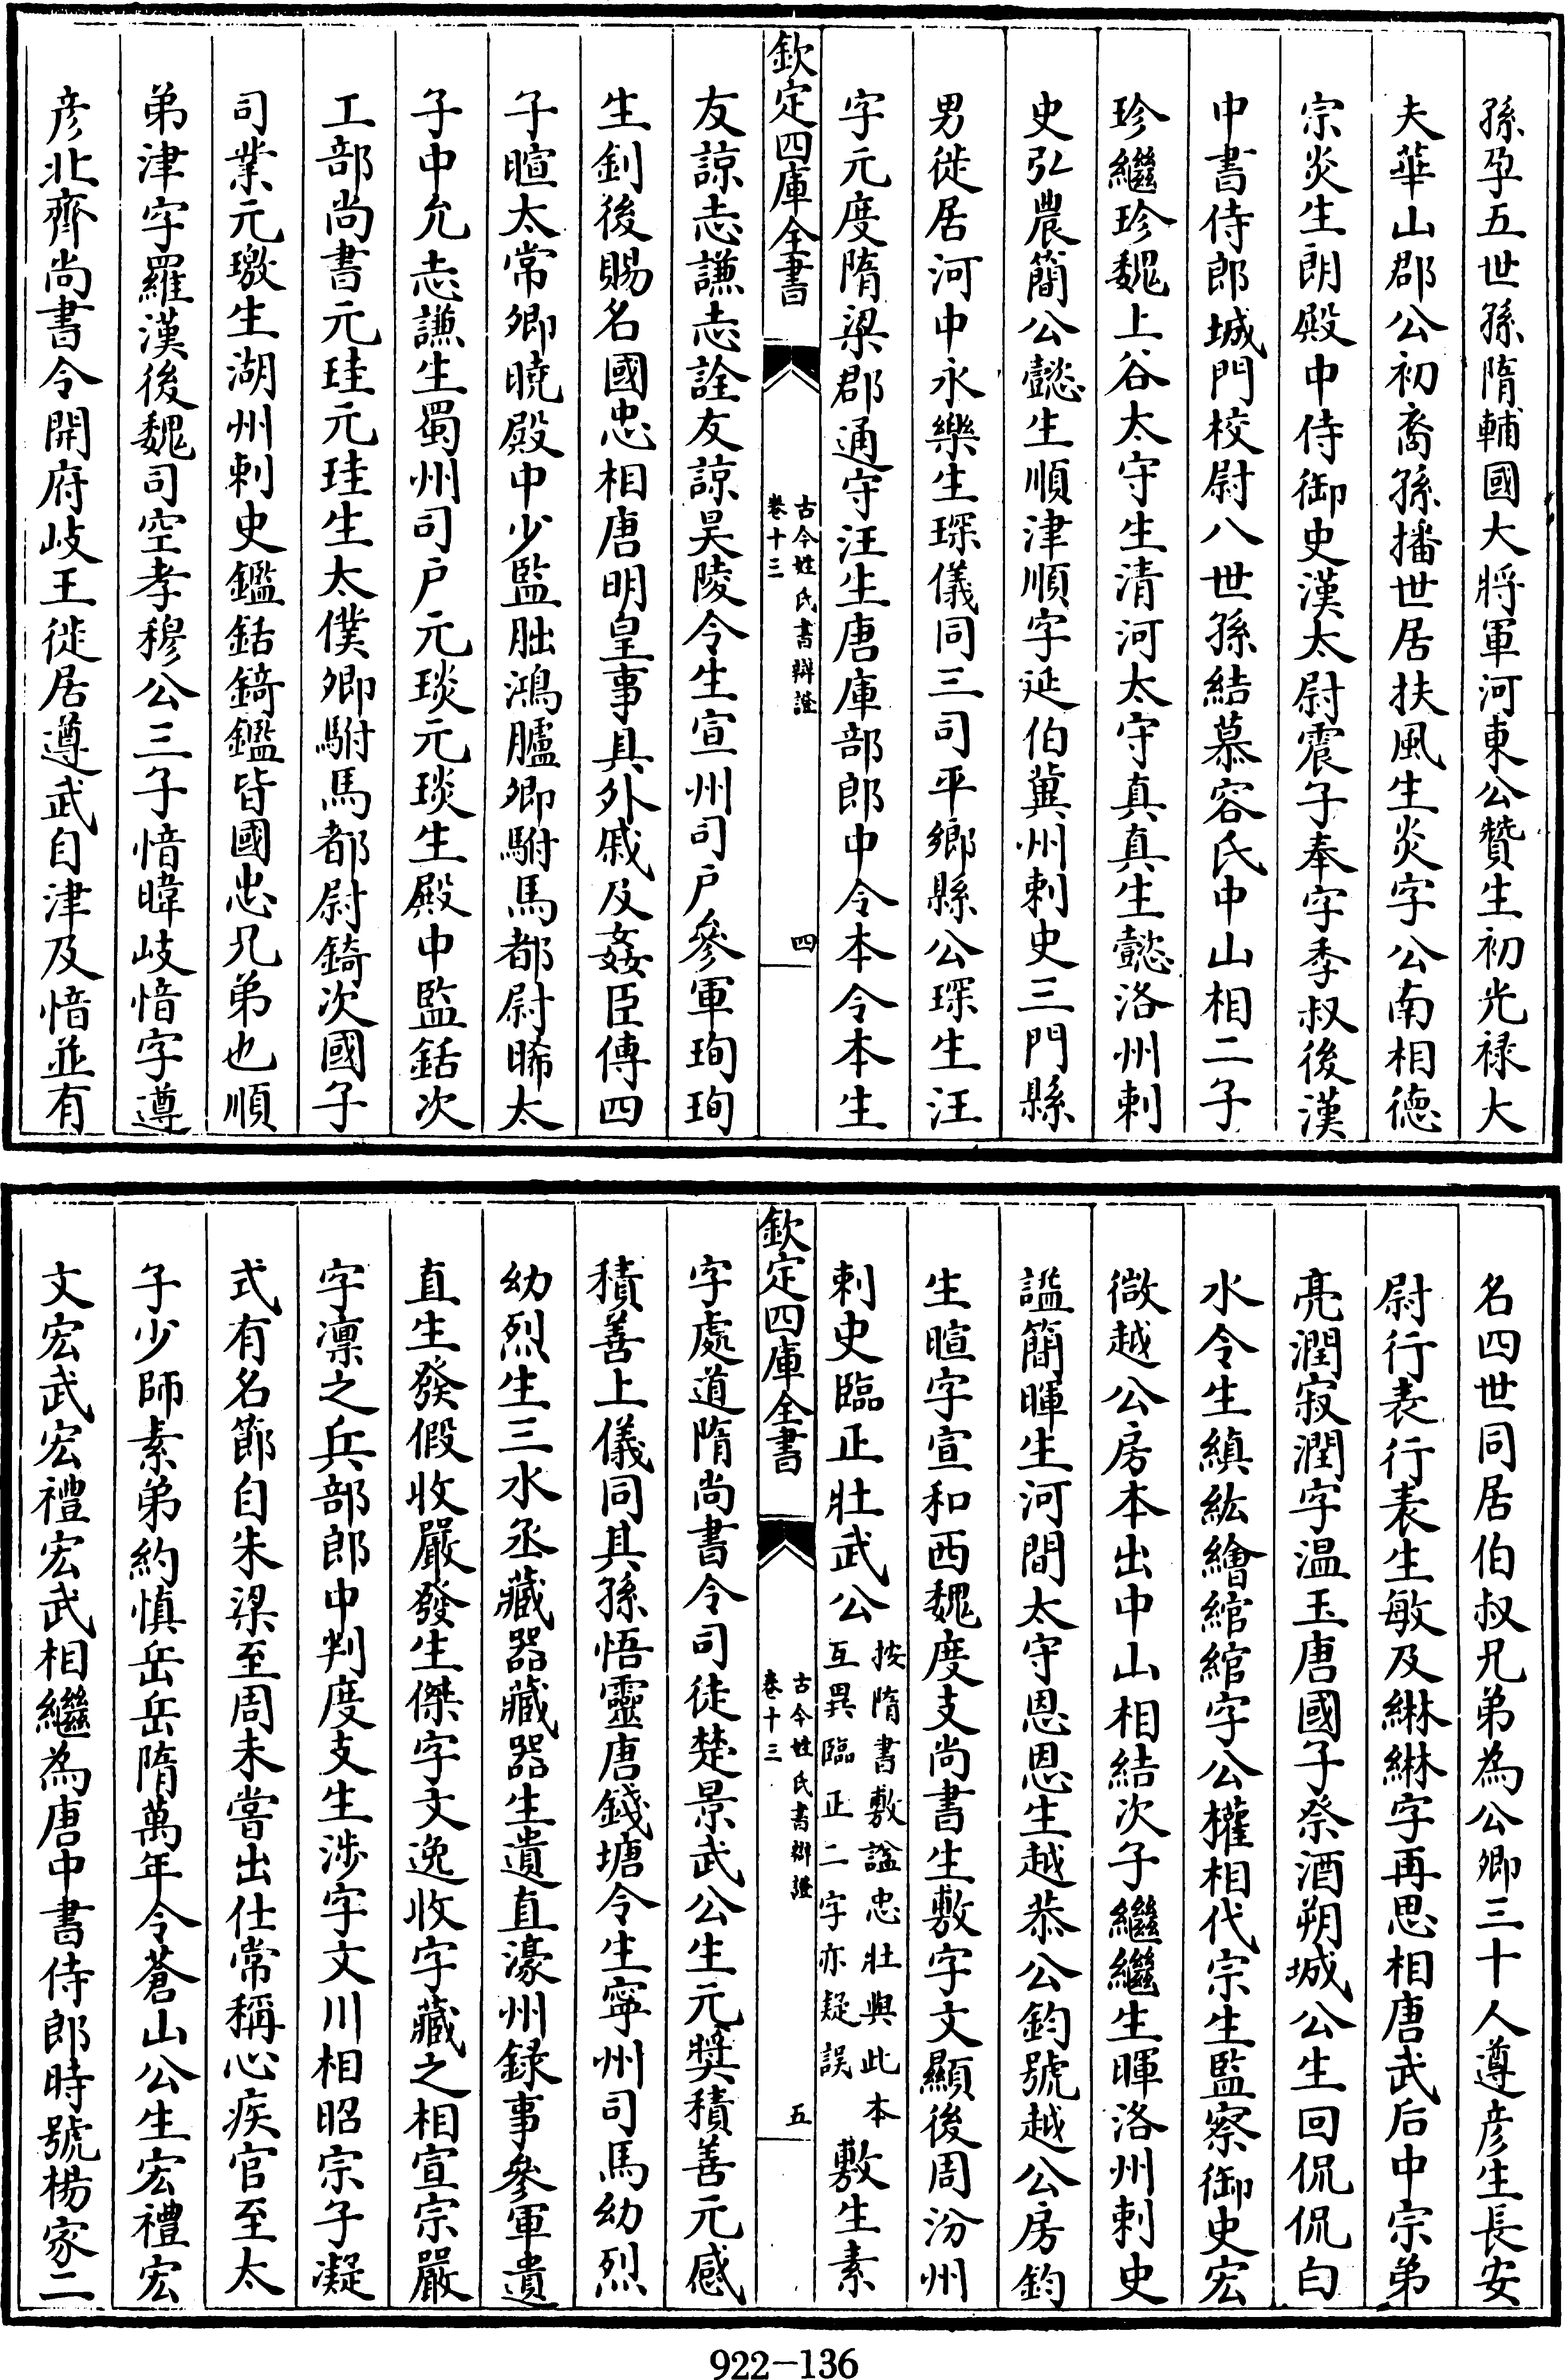 孫孕五世孫隋輔國大將軍河東公贊生初光禄大
夫華山郡公初裔孫播世居扶風生炎字公南相德
宗炎生朗殿中侍御史漢太尉震子奉字季叔後漢
中書侍郎城門校尉八世孫結慕容氏中山相二子
珍繼珍魏上谷太守生清河太守真真生懿洛州刺
史弘農簡公懿生順津順字延伯冀州刺史三門縣
男徙居河中永樂生琛儀同三司平鄉縣公琛生汪
字元度隋梁郡通守汪生唐庫部郎中令本令本生
欽定四庫全書
古今姓氏書辯證
卷十三
四
友諒志謙志詮友諒吴陵令生宣州司户參軍珣珣
生釗後賜名國忠相唐明皇事具外戚及姦臣傳四
子暄太常卿曉殿中少監朏鴻臚卿駙馬都尉晞太
子中允志謙生蜀州司户元琰元琰生殿中監銛次
工部尚書元珪元珪生太僕卿駙馬都尉錡次國子
司業元璬生湖州刺史鑑銛錡鑑皆國忠兄弟也順
弟津字羅漢後魏司空孝穆公三子愔暐岐愔字遵
彦北齊尚書令開府岐王徙居遵武自津及愔並有
名四世同居伯叔兄弟為公卿三十人遵彦生長安
尉行表行表生敏及綝綝字再思相唐武后中宗弟
亮潤寂潤字温玉唐國子祭酒朔城公生回侃侃白
水令生縝紘繪綰綰字公權相代宗生監察御史宏
微越公房本出中山相結次子繼繼生暉洛州刺史
謚簡暉生河間太守恩恩生越恭公鈞號越公房鈞
生暄字宣和西魏度支尚書生敷字文顯後周汾州
刺史臨正壯武公按隋書敷諡忠壯與此本互異臨正二字亦疑誤敷生素
欽定四庫全書
古今姓氏書辯證
卷十三
五
字處道隋尚書令司徒楚景武公生元奬積善元感
積善上儀同其孫悟靈唐錢塘令生寧州司馬幼烈
幼烈生三水丞藏器藏器生遺直濠州録事參軍遺
直生發假收嚴發生傑字文逸收字藏之相宣宗嚴
字凛之兵部郎中判度支生涉字文川相昭宗子凝
式有名節自朱梁至周未嘗出仕常稱心疾官至太
子少師素弟約慎岳岳隋萬年令蒼山公生宏禮宏
文宏武宏禮宏武相繼為唐中書侍郎時號楊家二
922-136